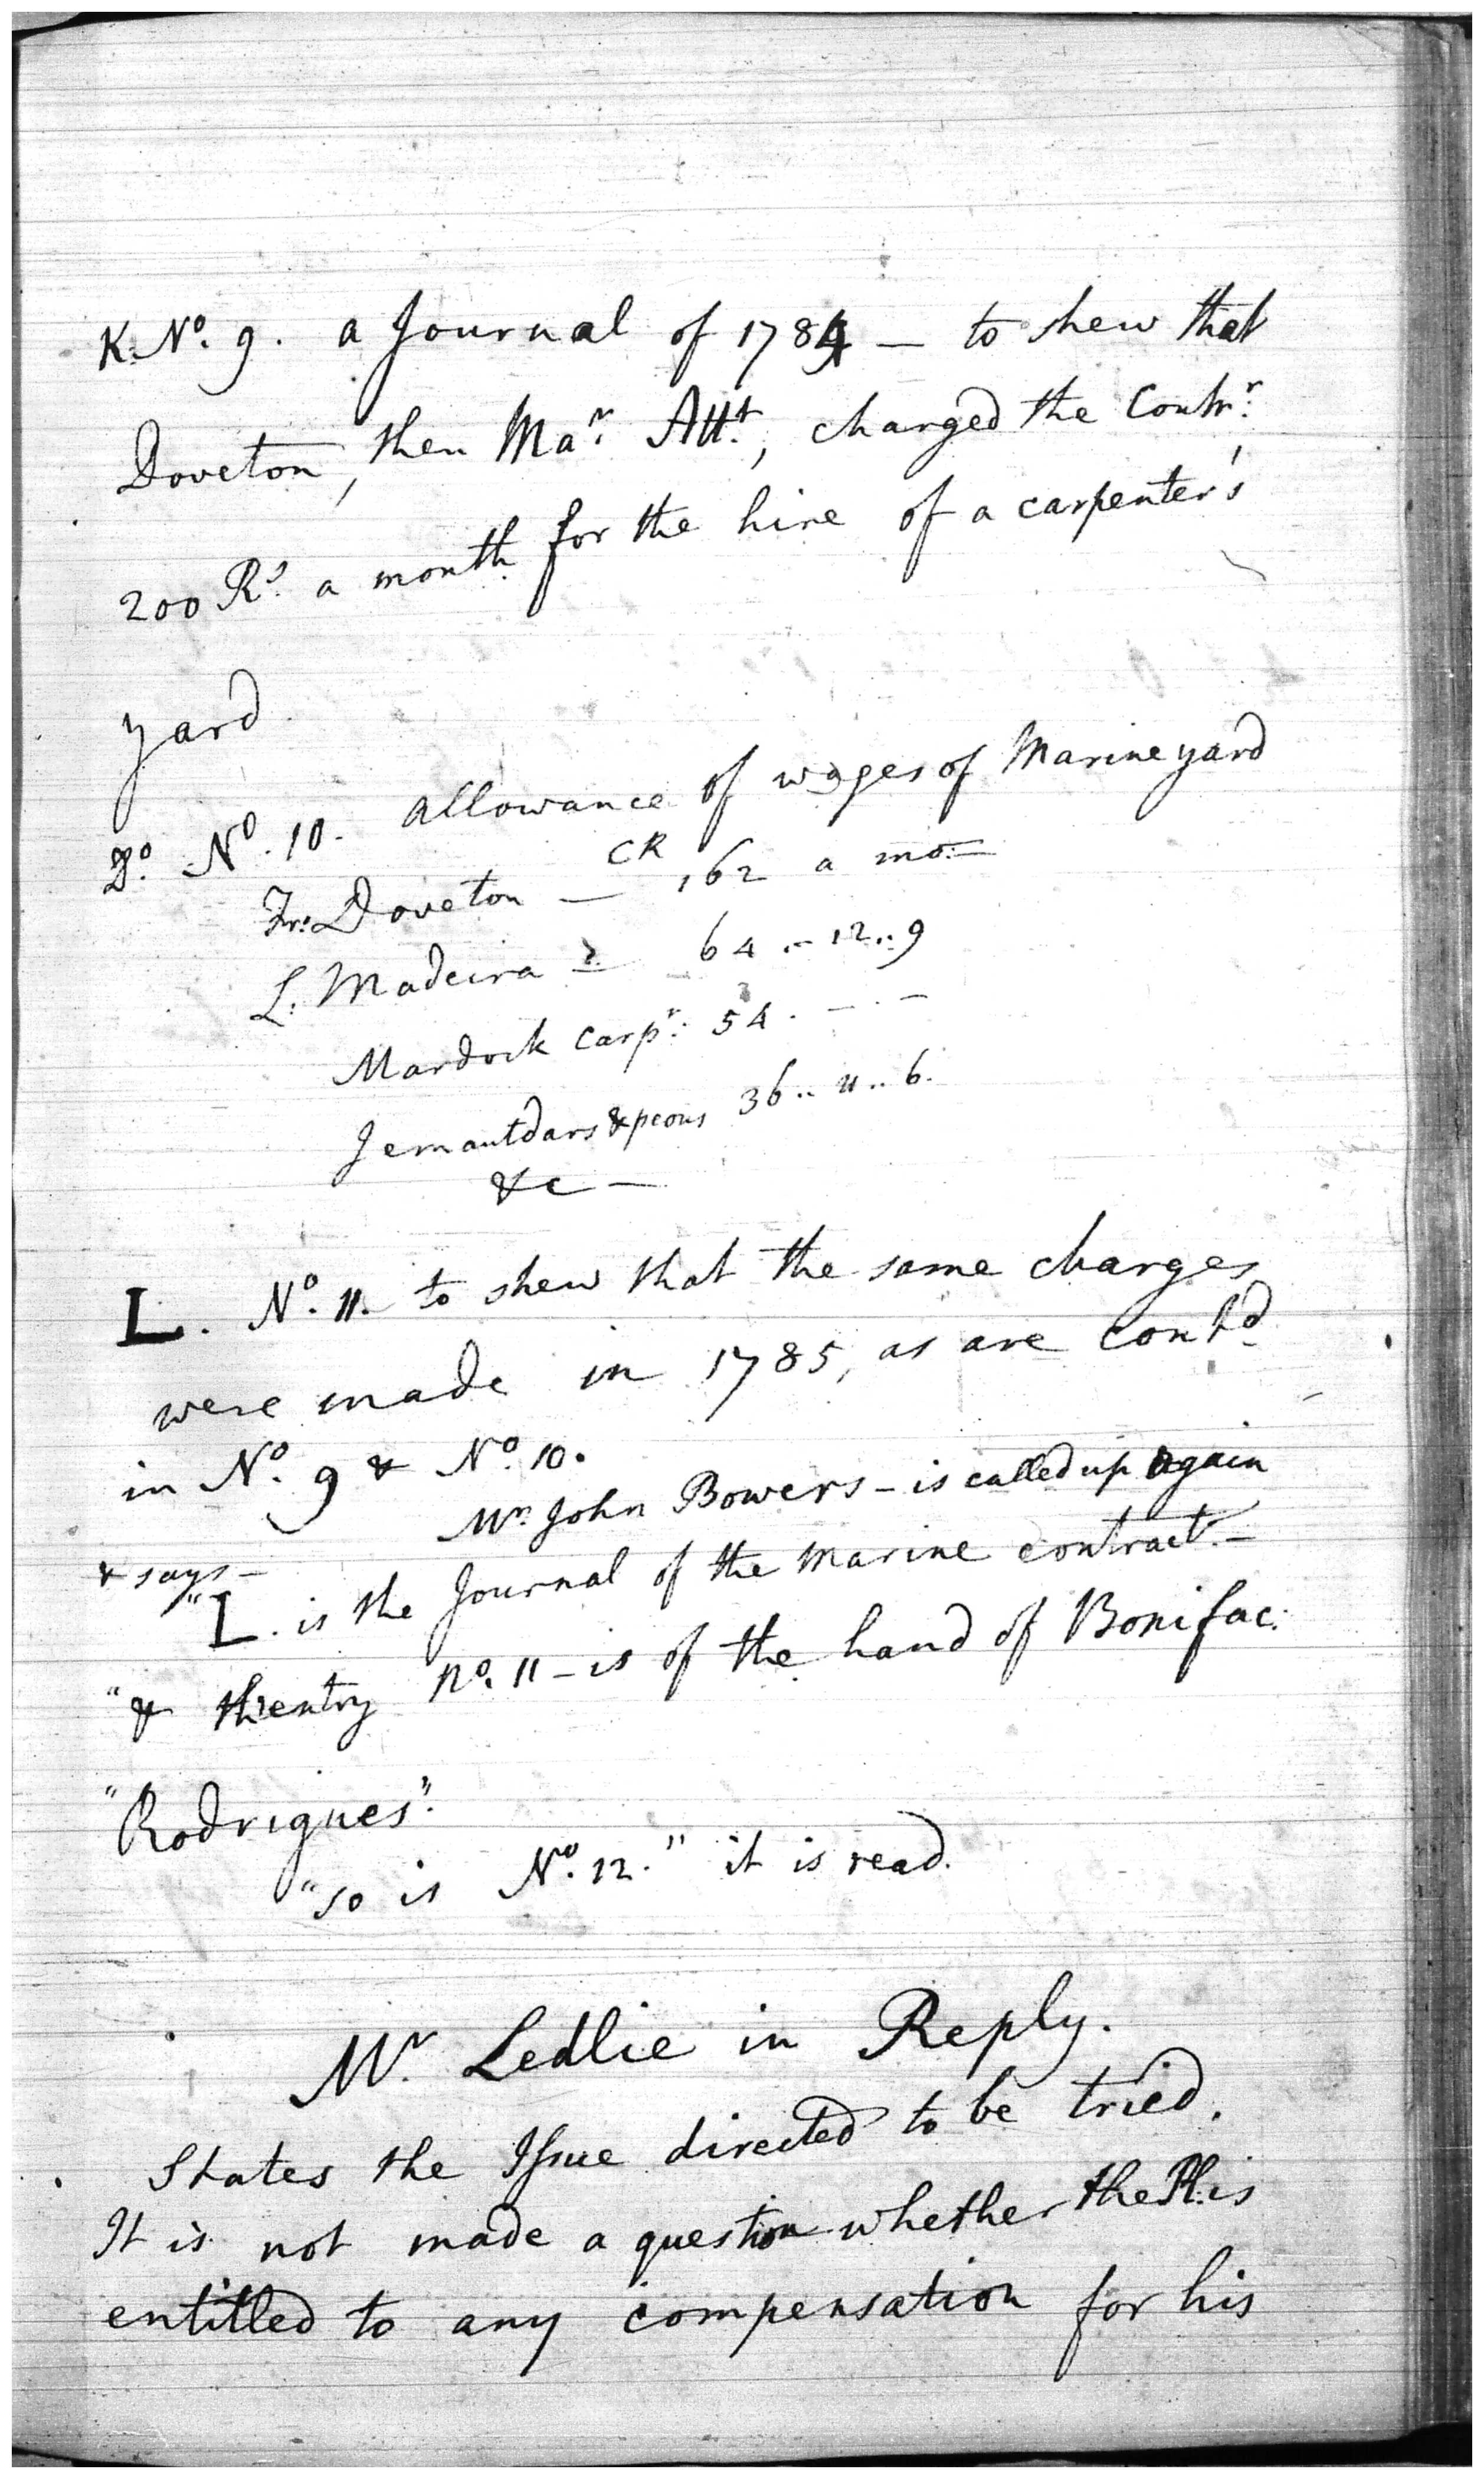 K. No. 9. a Journal of 1784 — to shew that
Doveton, then Mar. Attt., charged the Contrr.
200 Rs. a month for the hire of a carpenter's
yard.
Do. No. 10. allowance of wages of Marine yard
Fr. Doveton — CR 162 a mo. —
L. Madeira — 64 .. 12 .. 9
Mardock Carpr. 54. — . —
Jemautdars & peons 36 .. 11 .. 6.
&c —
L. No. 11. to shew that the same charges
were made in 1785, as are contd
in No. 9 & No. 10.
Mr. John Bowers – is called up again
& says –
"L. is the Journal of the Marine contract. –
"& the entry No. 11 – is of the hand of Bonifac:
"Rodrigues".
"so is No. 12." it is read.
Mr. Ledlie in Reply.
States the Issue directed to be tried.
It is not made a question whether the Pl. is
entitled to any compensation for his